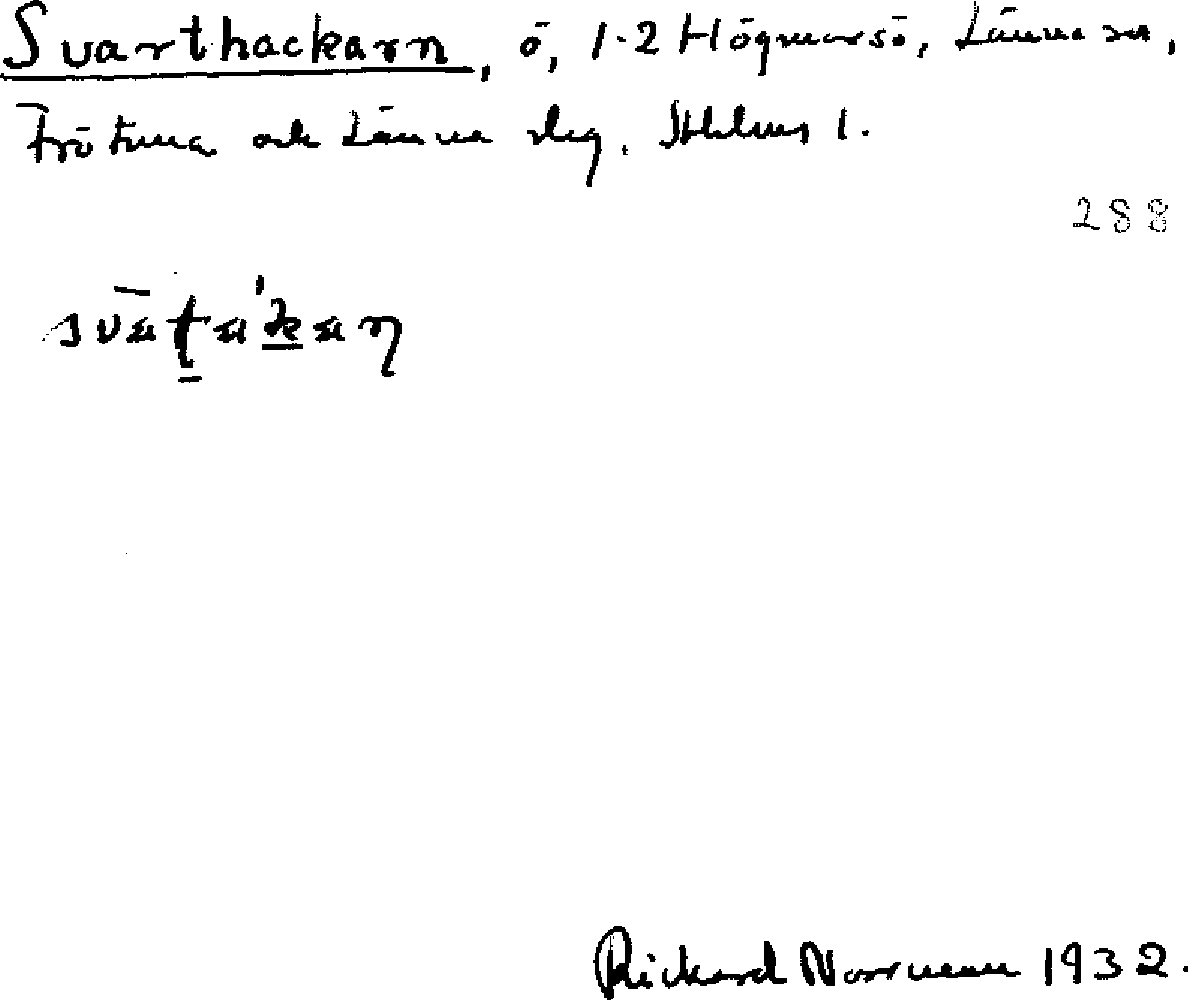 Svarthackarn, ö, 1-2 Högmarsö, Länna sn,
Frötuna och Länna slg, Sthlms l.
288
Rickard Norrman 1932.